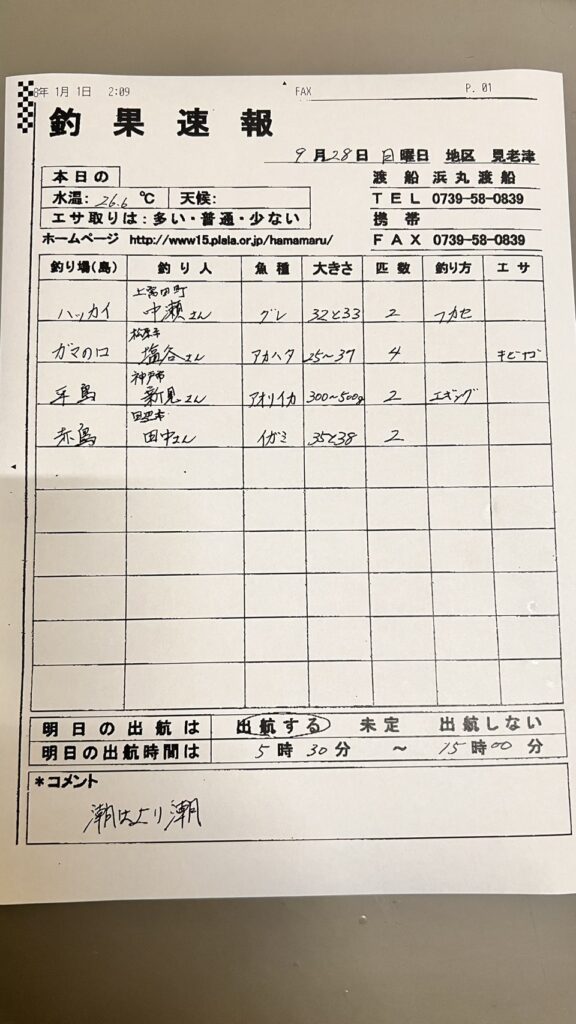 8年 1月 1日 2:09 FAX P. 01
釣果速報
9月28日 日曜日 地区 見老津
本日の
水温: 26.6 ℃ 天候:
エサ取りは:多い・普通・少ない
ホームページ http://www15.plala.or.jp/hamamaru/
渡船 浜丸渡船
TEL 0739-58-0839
携帯
FAX 0739-58-0839
釣り場(島) 釣り人 魚種 大きさ 匹数 釣り方 エサ
上富田町
ハッカイ 中瀬さん グレ 32と33 2 フカセ
松原市
ガマの口 塩谷さん アカハタ 25〜37 4 キビナゴ
神戸市
平島 新見さん アオリイカ 300〜500g 2 エギング
田辺市
赤島 田中さん イガミ 35と38 2
明日の出航は 出航する 未定 出航しない
明日の出航時間は 5時30分 〜 15時00分
*コメント
潮は上り潮